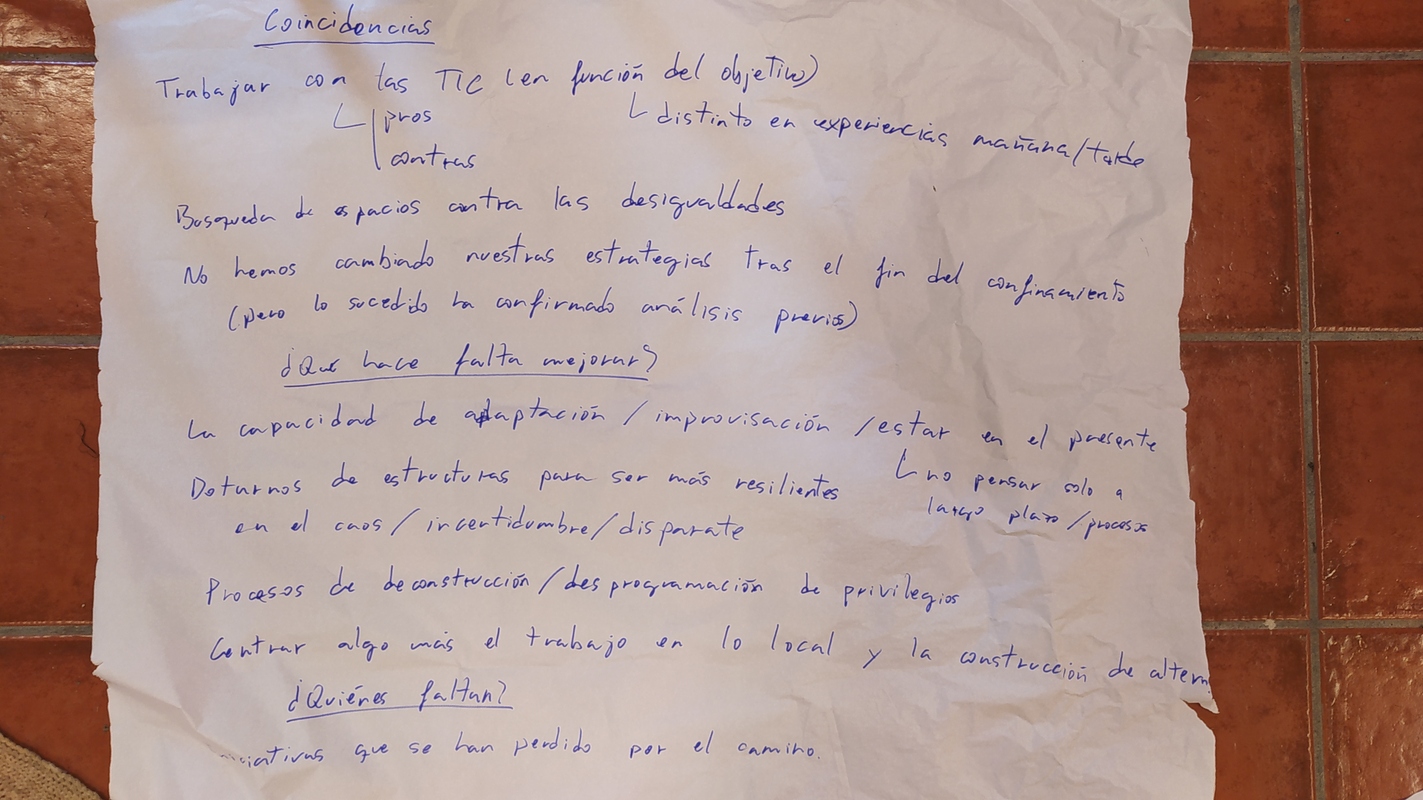 Coincidencias
Trabajar con las TIC (en función del objetivo)
pros
contras
distinto en experiencias mañana/tarde
Busqueda de espacios contra las desigualdades
No hemos cambiado nuestras estrategias tras el fin del confinamiento
(pero lo sucedido ha confirmado análisis previos)
¿Qué hace falta mejorar?
La capacidad de adaptación / improvisación / estar en el presente
no pensar solo a
largo plazo / procesos
Dotarnos de estructuras para ser más resilientes
en el caos / incertidumbre / disparate
Procesos de deconstrucción / desprogramación de privilegios
Centrar algo más el trabajo en lo local y la construcción de altern.
¿Quiénes faltan?
que se han perdido por el camino.